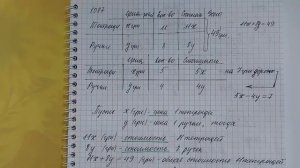 1087
цена, грн кол-во Стоимость
Тетради x грн 11 11x 49 грн 11x+8y=49
Ручки y грн 8 8y
цена кол-во Стоимость
Тетради x грн 5 5x на 7 грн дороже
Ручки y грн 4 4y 5x-4y=7
Пусть x (грн) - цена 1 тетради
y (грн) - цена 1 ручки, тогда
11x (грн) - стоимость 11 тетрадей
8y (грн) - стоимость 8 ручек
11x+8y=49 (грн) - общая стоимость 11 тетрадей